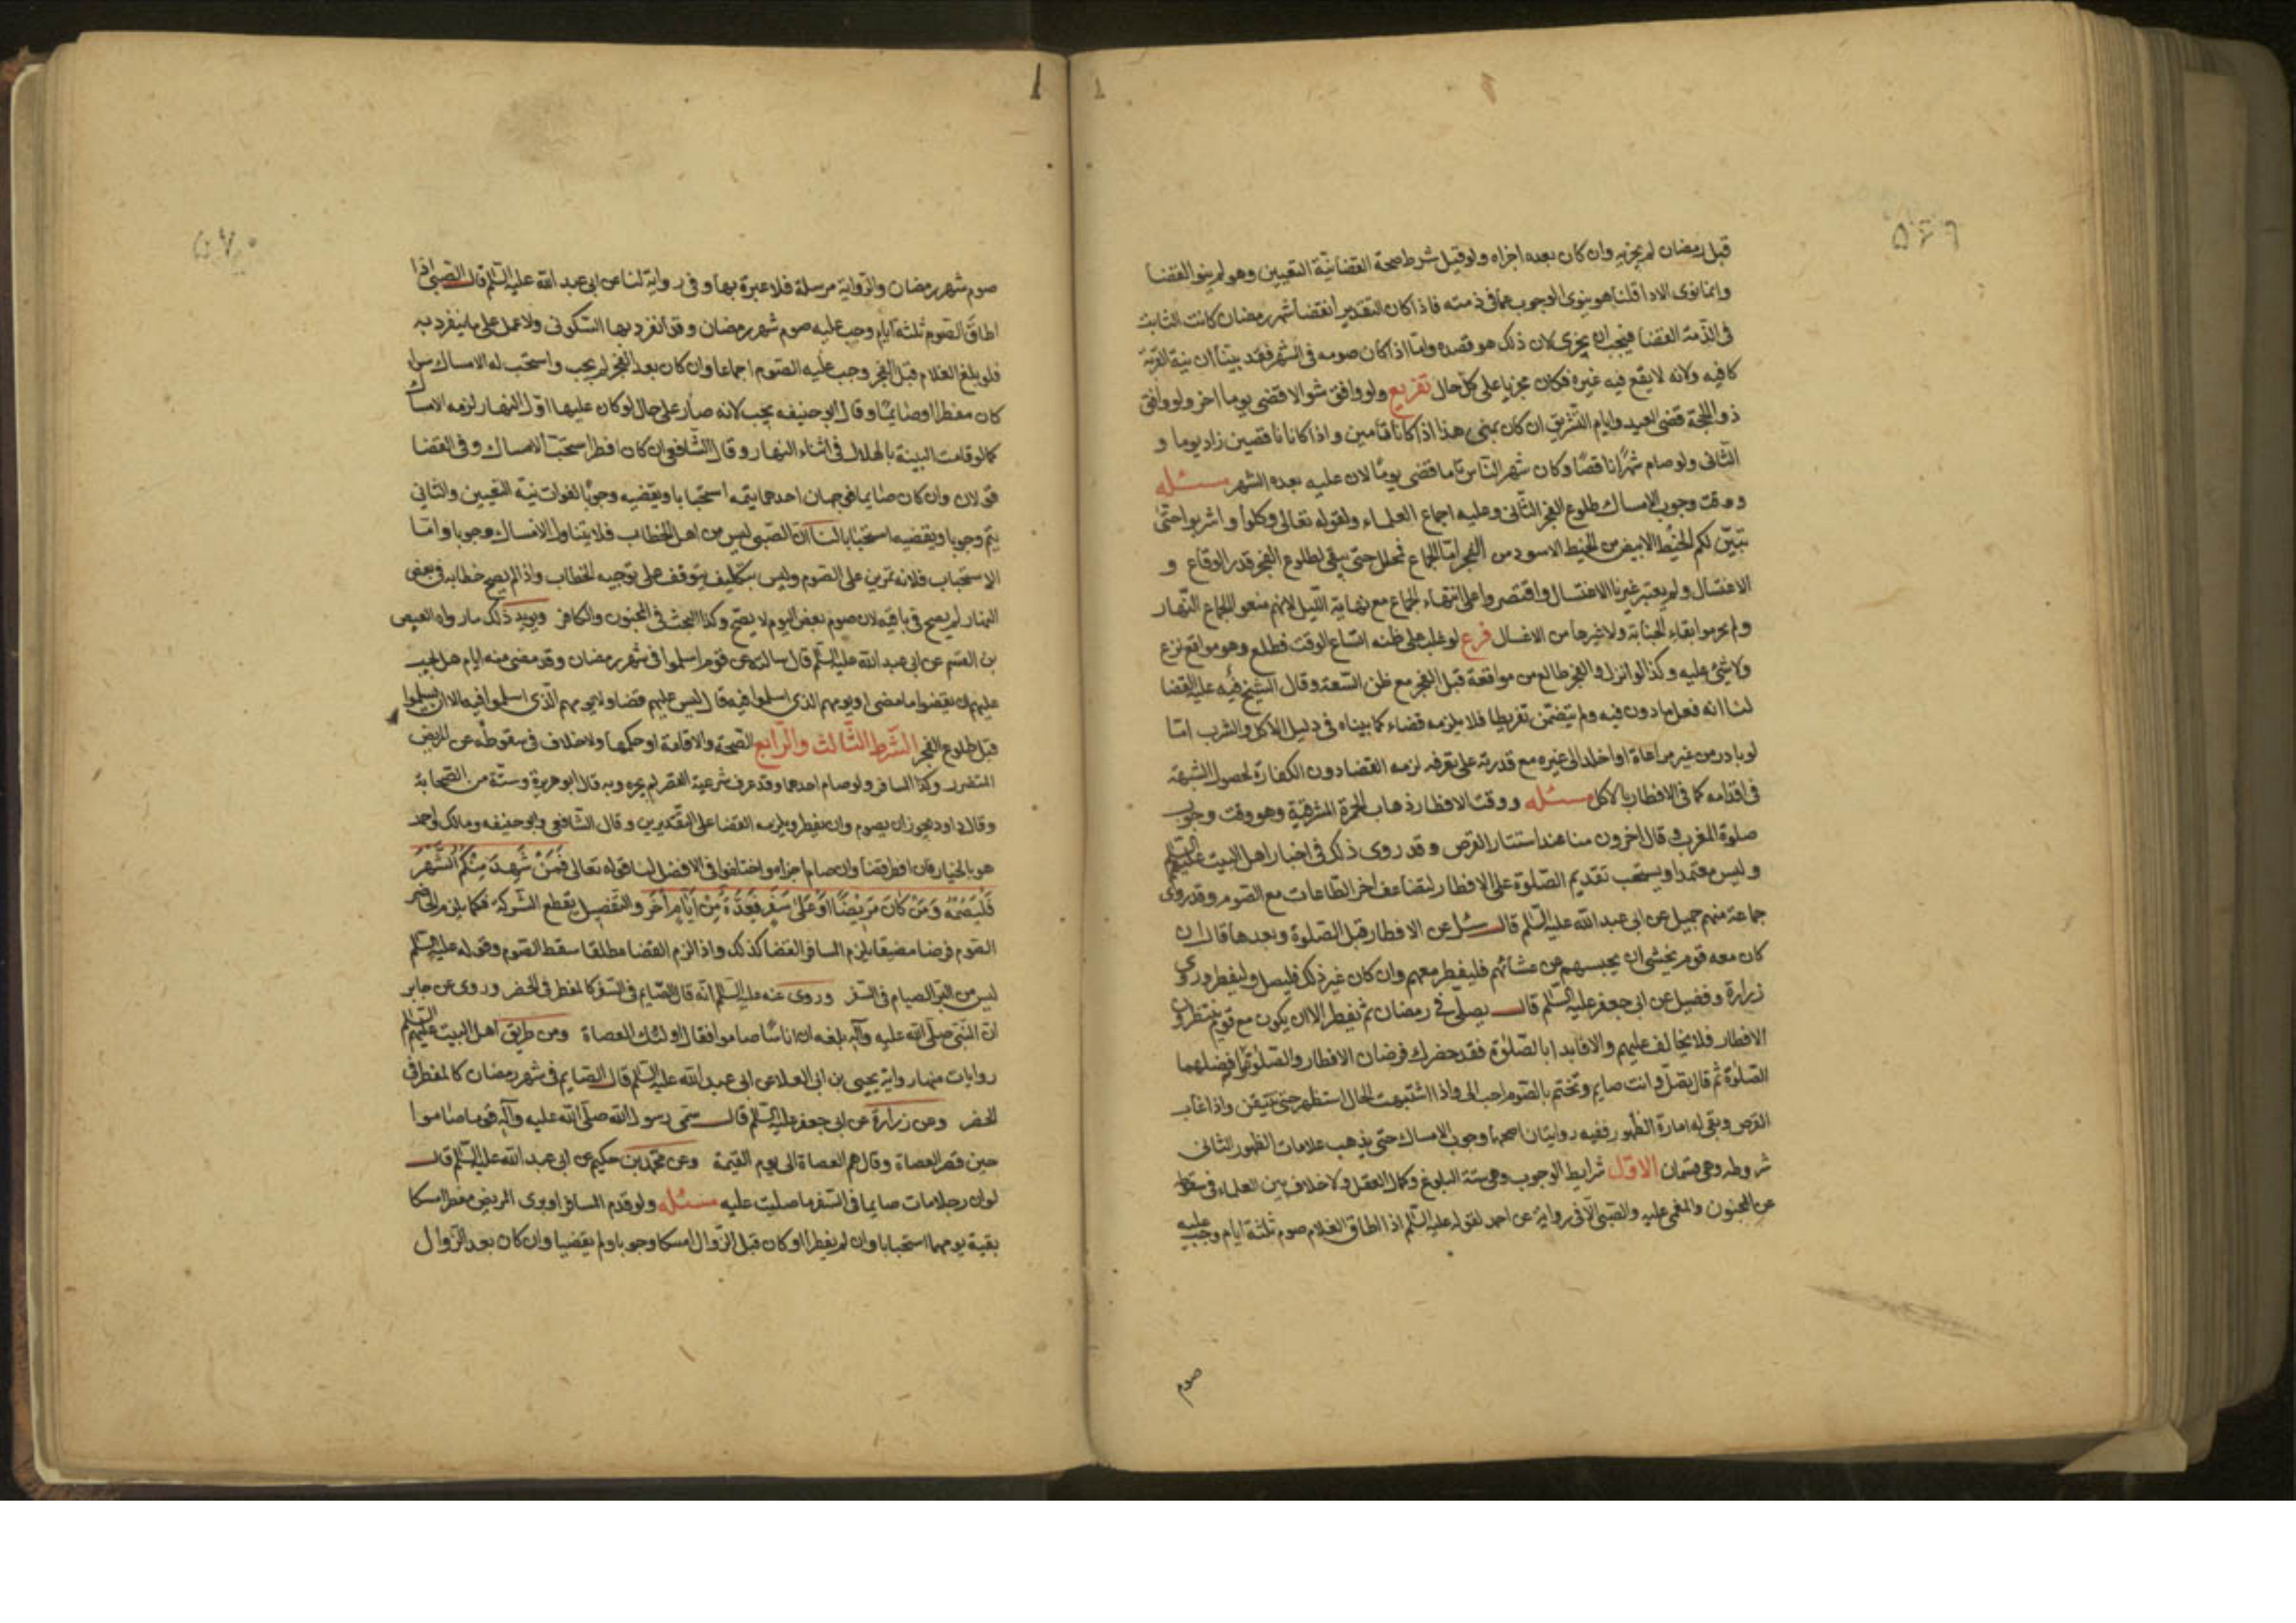 ٥٦٩
قبل رمضان لم يجزيه وان كان بعده اجزاه ولو قيل شرط صحة القضا نيّة التعيين وهو لم ينو القضا
وانما نوى الادا قلنا هو ينوى الوجوب عما فى ذمته فاذا كان التقدير انقضا شهر رمضان كانت الثابت
فى الذّمة القضا فيجب ان يجزى لان ذلك هو قصده وامّا اذا كان صومه فى الشهر فقد بيّنا ان نية القربة
كافيه ولانه لا يقع فيه غيره فكان مجزيا على كل حال تفريع ولو وافق شوالا قضى يوما اخر ولو وافق
ذو الحجة قضى العيد وايام التشريق ان كان بمنى هذا اذا كانا تامين واذا كانا ناقصين زاد يوما و
الثانى ولو صام شهرًا ناقصًا وكان شهر الناس تاما قضى يومًا لان عليه بعده الشهر مسئله
ووقت وجوب الامساك طلوع الفجر الثانى وعليه اجماع العلماء ولقوله تعالى وكلوا واشربوا حتى
يتبيّن لكم الخيط الابيض من الخيط الاسود من الفجر امّا الجماع فحلل حتى يبقى لطلوع الفجر قدر الوقاع و
الاغتسال ولم يعتبر غيرنا الاغتسال واقتصروا على انتهاء الجماع مع نهاية اللّيل لانهم منعوا الجماع النّهار
ولم يحرموا بقاء الجنابة ولا غيرها من الاغسال فرع لو غلب على ظنه اتساع الوقت فطلع وهو مواقع نزع
ولا شئ عليه وكذا لو انزل والفجر طالع من مواقعة قبل الفجر مع ظن السّعة وقال الشيخ فيه عليه القضا
لنا انه فعل مأذون فيه ولم يتضمّن تفريطا فلا يلزمه قضاء كما بيناه فى دليل الاكل والشرب امّا
لو بادر من غير مراعاة او اخلد الى غيره مع قدرته على تعرفه لزمه القضا دون الكفارة لحصول الشبهة
فى اقدامه كما فى الافطار بالاكل مسئله ووقت الافطار ذهاب الحمرة المشرقيّة وهو وقت وجوب
صلوة المغرب وقال اخرون منا عند استتار القرص وقد روى ذلك فى اخبار اهل البيت عليهم السّلم
وليس معتمدا ويستحب تقديم الصّلوة على الافطار لتضاعف اخر الطّاعات مع الصوم وقد روى
جماعة منهم جميل عن ابى عبد الله عليه السّلم قال سئل عن الافطار قبل الصّلوة وبعدها قال ان
كان معه قوم يخشى ان يحبسهم عن عشائهم فليفطر معهم وان كان غير ذلك فليصل وليفطر وروى
زرارة وفضيل عن ابى جعفر عليه السّلم قال يصلّى فى رمضان ثم يفطر الا ان يكون مع قوم ينتظرون
الافطار فلا يخالف عليهم والا فابدا بالصّلوة فقد حضرك فرضان الافطار والصّلوة وافضلهما
الصّلوة ثم قال يصلّ وانت صايم وتختم بالصّوم احب الى واذا اشتبهت الحال استظهر حتى يتيقن واذا غاب
القرص وبقى له امارة الظهور ففيه روايتان اصحهما وجوب الامساك حتى يذهب علامات الظهور الثانى
شروطه وهى قسمان الاوّل شرايط الوجوب وهى ستة البلوغ وكمال العقل ولا خلاف بين العلماء فى سقوطه
عن المجنون والمغمى عليه والصّبى الّا فى رواية عن احمد لقوله عليه السّلم اذا اطاق الغلام صوم ثلثة ايام وجب عليه
صوم
٥٧٠
صوم شهر رمضان والرّواية مرسلة فلا عبرة بها وفى رواية لنا عن ابى عبد الله عليه السّلم قال الصّبى اذا
اطاق الصّوم ثلثة ايام وجب عليه صوم شهر رمضان وقد انفرد بها السّكونى ولا عمل على ما ينفرد به
فلو بلغ الغلام قبل الفجر وجب عليه الصّوم اجماعا وان كان بعد الفجر لم يجب واستحب له الامساك سواء
كان مفطرا او صايمًا وقال ابو حنيفه يجب لانه صار على حال لو كان عليها اوّل النهار لزمه الامساك
كما لو قامت البينة بالهلال فى اثناء النهار وقال الشّافعى ان كان افطر استحبّ الامساك وفى القضا
قولان وان كان صايما فوجهان احدهما يتمه استحبابا ويقضيه وجوبًا لفوات نيّة التعيين والثانى
يتم وجوبا ويقضيه استحبابا لنا انّ الصّبى ليس من اهل الخطاب فلا يتناوله الامساك وجوبا وامّا
الاستحباب فلانه تمرين على الصّوم وليس بتكليف يتوقف على توجيه الخطاب واذا لم يصح خطابه فى بعض
النهار لم يصح فى باقيه لان صوم بعض اليوم لا يصّح وكذا البحث فى المجنون والكافر ويويد ذلك ما رواه العيص
بن القسم عن ابى عبد الله عليه السّلم قال سالته عن قوم اسلموا فى شهر رمضان وقد مضى منه ايام هل يجب
عليهم ان يقضوا ما مضى او يومهم الذى اسلموا فيه قال ليس عليهم قضا ولا يومهم الّذى اسلموا فيه الا ان يسلموا
قبل طلوع الفجر الشّرط الثّالث والرّابع الصّحة والاقامة او حكمها ولا خلاف فى سقوطه عن المريض
المتضرر وكذا المسافر ولو صام احدهما وقد عرف شرعية القصر لم يجزه وبه قال ابو هريرة وستّة من الصّحابة
وقال داود يجوز ان يصوم وان يفطر ويلزمه القضا على التقديرين وقال الشّافعى وابو حنيفه ومالك واحمد
هو بالخيار فان افطر قضا وان صام اجزاه واختلفوا فى الافضل لنا قوله تعالى فَمَنْ شَهِدَ مِنْكُمُ الشَّهْرَ
فَلْيَصُمْهُ وَمَنْ كَانَ مَرِيْضًا اَوْ عَلَى سَفَرٍ فَعِدَّةٌ مِنْ اَيَّامٍ اُخَرَ والتفصيل يقطع الشّركة فكما يلزم الحاضر
الصّوم فرضا مضيقا يلزم المسافر القضا كذلك واذا لزم القضا مطلقا سقط الصّوم وقوله عليه السّلم
ليس من البرّ الصيام فى السّفر وروى عنه عليه السّلم انّه قال الصّايم فى السّفر كالمفطر فى الحضر وروى عن جابر
انّ النّبى صلّى الله عليه وآله بلغه ان اناسًا صاموا فقال اولئك العصاة ومن طريق اهل البيت عليهم السّلم
روايات منها رواية يحيى بن ابى العلا عن ابى عبد الله عليه السّلم قال الصّايم فى شهر رمضان كالمفطر فى
الحضر وعن زرارة عن ابى جعفر عليه السّلم قال سمّى رسول الله صلّى الله عليه وآله قوما صاموا
حين قصر العصاة وقال هم العصاة الى يوم القيمة وعن محمّد بن حكيم عن ابى عبد الله عليه السّلم قال
لو ان رجلا مات صايما فى السّفر ما صليت عليه مسئله ولو قدم المسافر او برئ المريض مفطرا امسكا
بقية يومهما استحبابا وان لم يفطرا او كان قبل الزّوال امسكا وجوبا ولم يقضيا وان كان بعد الزّوال